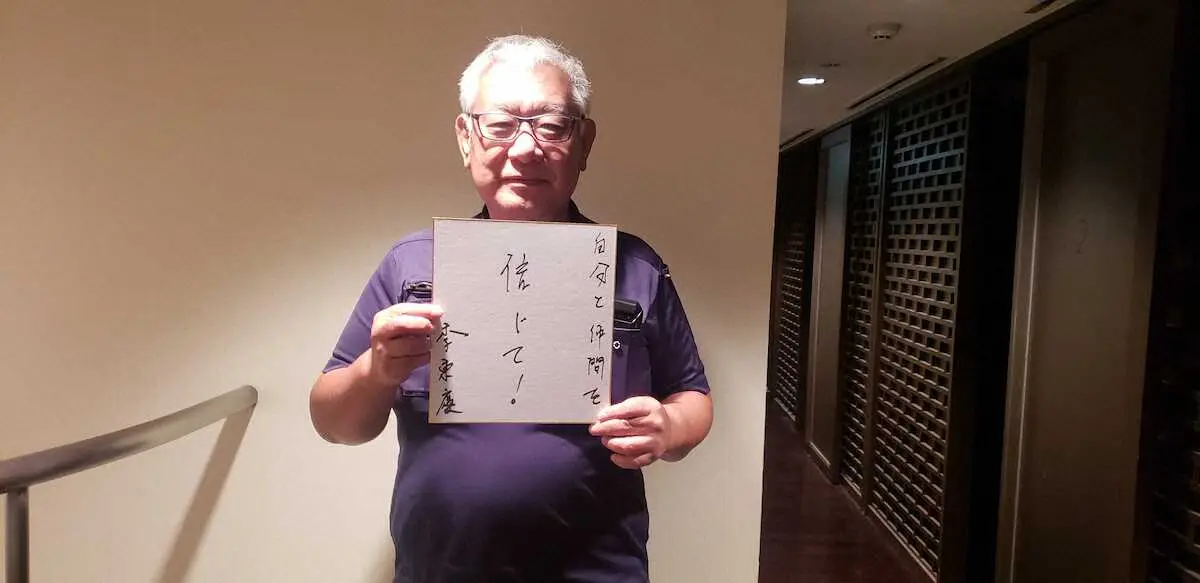 自分と仲間を
信じて！
李東慶